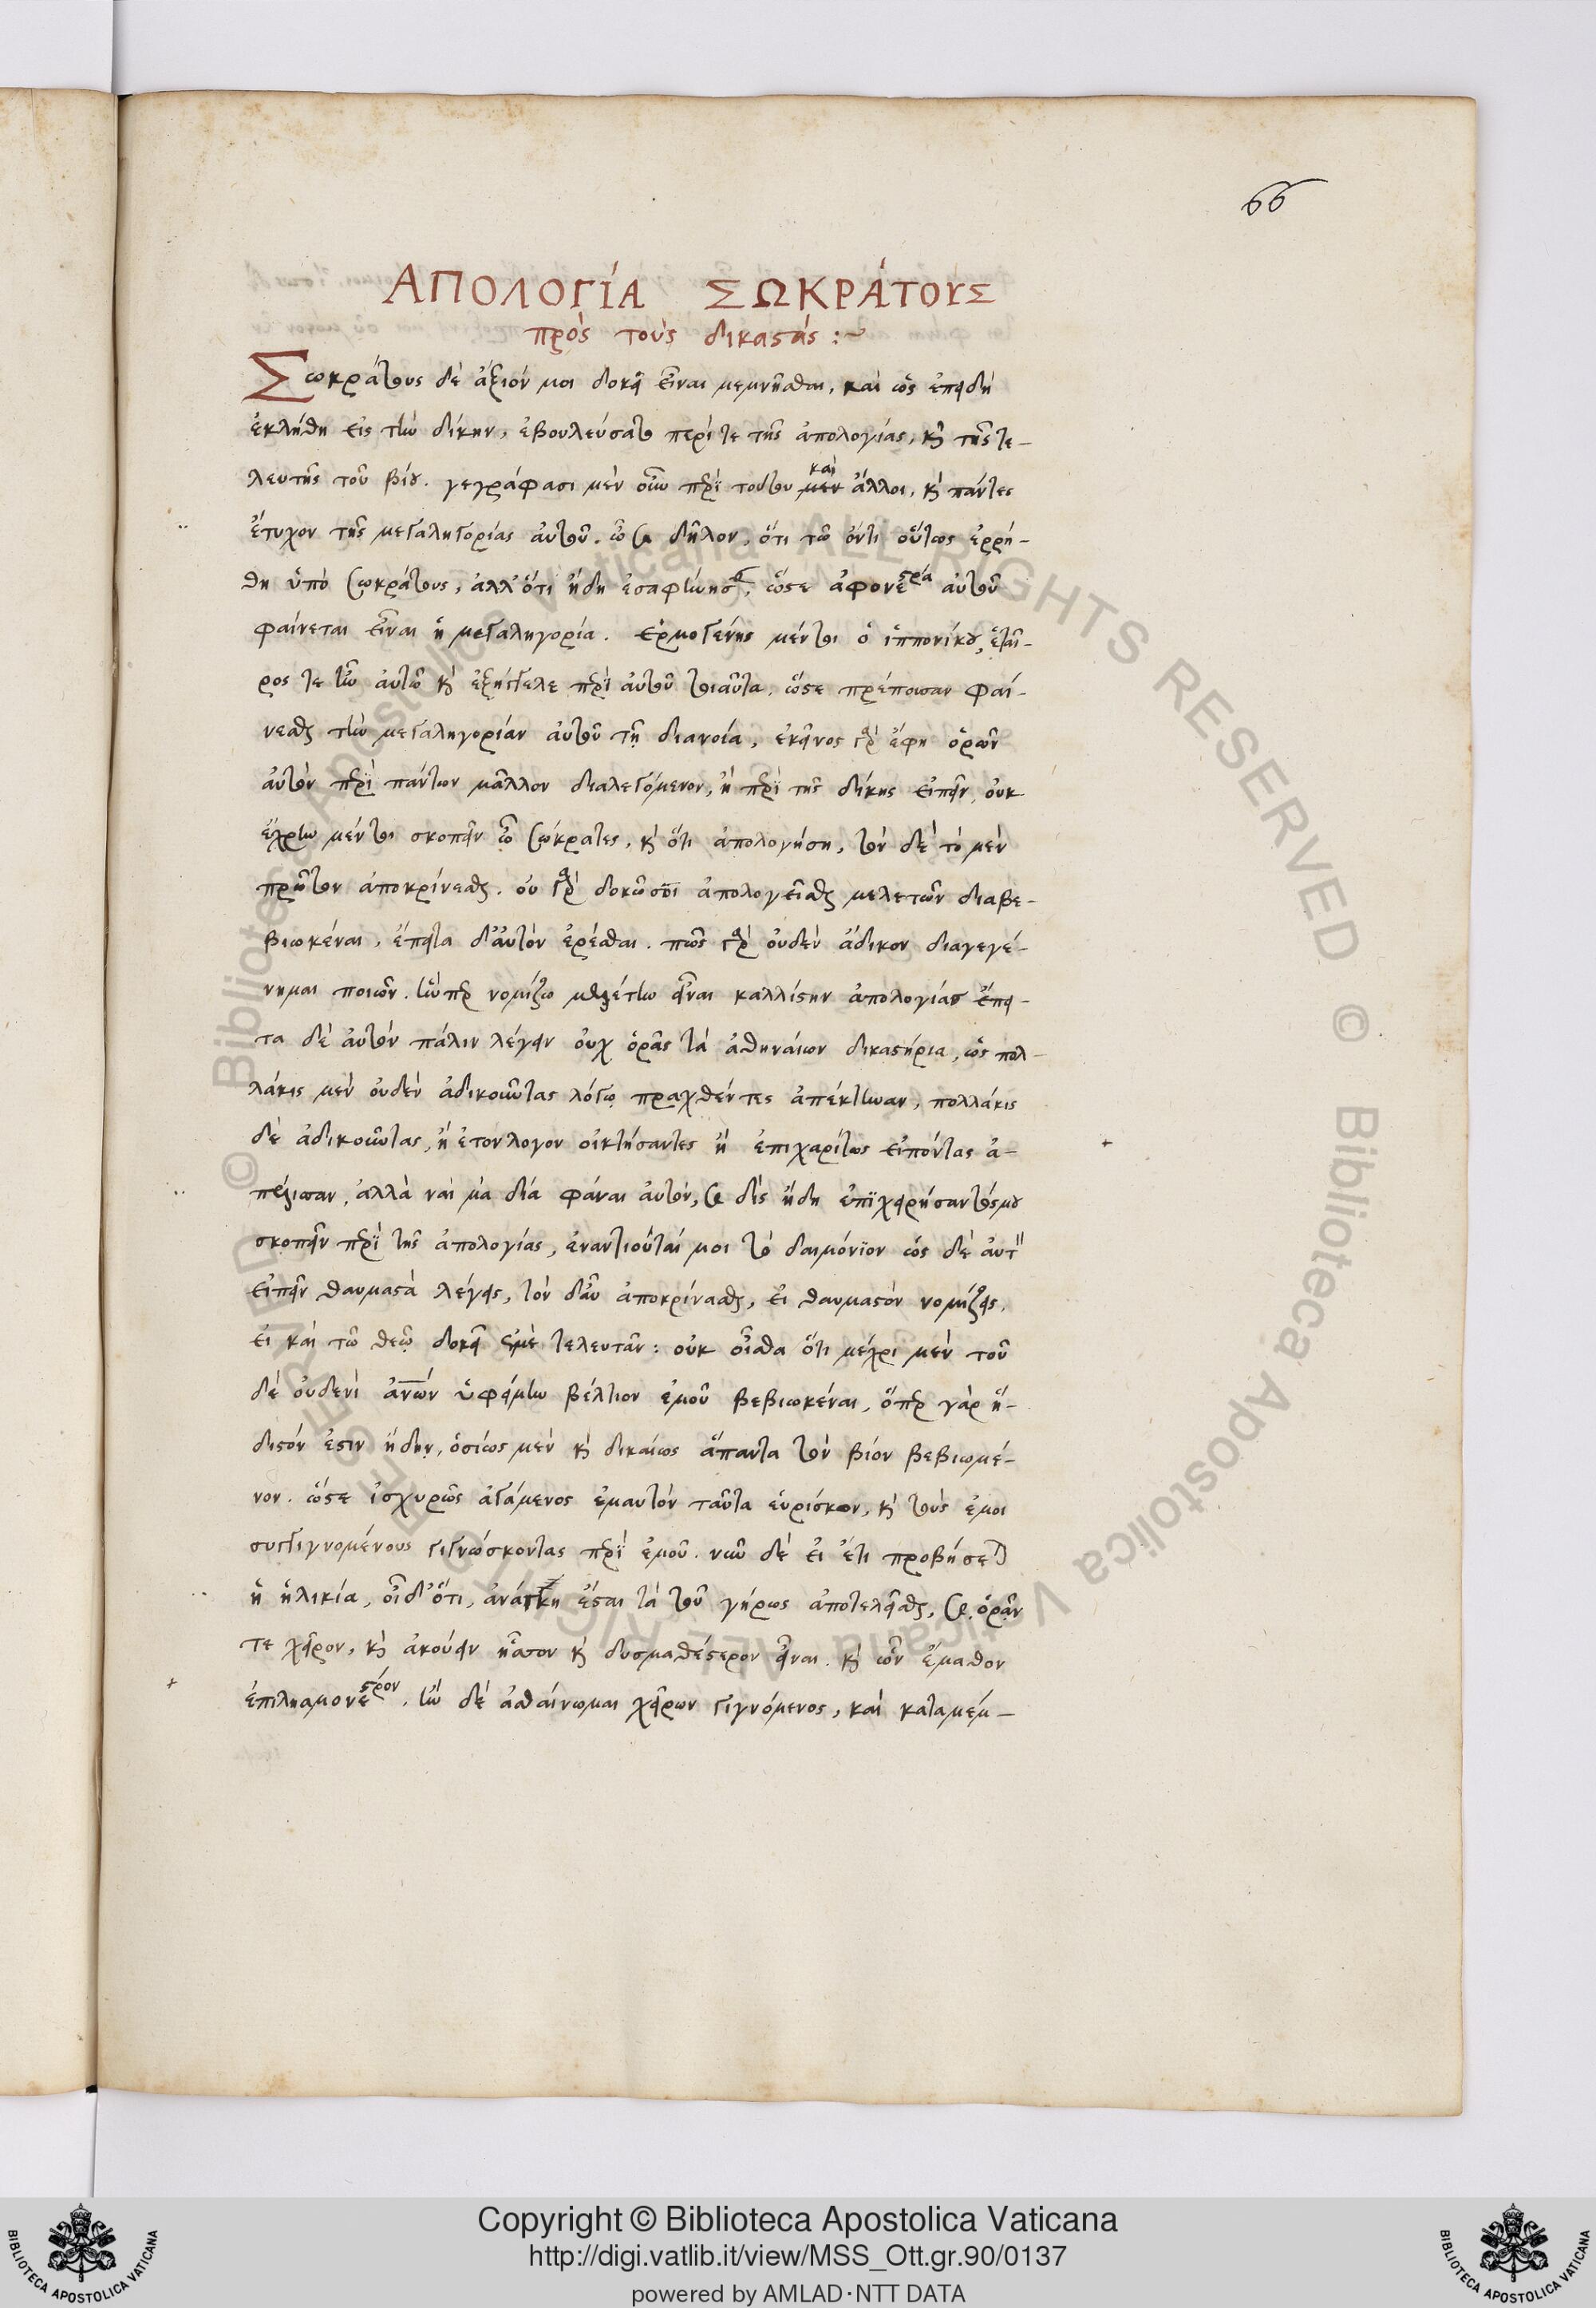 66
ΑΠΟΛΟΓΊΑ ΣΩΚΡΆΤΟΥΣ
πρὸς τοὺς δικαστάς :~
Σωκράτους δὲ ἄξιόν μοι δοκεῖ εἶναι μεμνῆσθαι, καὶ ὡς ἐπειδὴ
ἐκλήθη εἰς τὴν δίκην, ἐβουλεύσατο περί τε τῆς ἀπολογίας, καὶ τῆς τε-
λευτῆς τοῦ βίου. γεγράφασι μὲν οὖν περὶ τούτου μὲν καὶ ἄλλοι, καὶ πάντες
ἔτυχον τῆς μεγαληγορίας αὐτοῦ. ὦ καὶ δῆλον, ὅτι τῶ ὄντι οὕτως ἐρρή-
θη ὑπὸ Σωκράτους, ἀλλ' ὅτι ἤδη ὥστε ἀφονεστέρα αὐτοῦ
φαίνεται εἶναι ἡ μεγαληγορία. Ερμογένης μέντοι ὁ ἱππονίκου, ἑταῖ-
ρος τε ἦν αὐτῶ καὶ ἐξήγγειλε περὶ αὐτοῦ τοιαῦτα, ὥστε πρέπουσαν φαί-
νεσθαι τὴν μεγαληγορίαν αὐτοῦ τῆ διανοία, ἐκεῖνος γὰρ ἔφη ὁρῶν
αὐτὸν περὶ πάντων μᾶλλον διαλεγόμενον, ἢ περὶ τῆς δίκης εἰπεῖν, οὐκ
ἐχρῆν μέντοι σκοπεῖν ὦ Σώκρατες, καὶ ὅτι ἀπολογήση, τὸν δὲ τὸ μὲν
πρῶτον ἀποκρίνεσθαι. οὐ γὰρ δοκῶ σοι ἀπολογεῖσθαι μελετῶν διαβε-
βιωκέναι, ἔπειτα δ' αὐτὸν ἐρέσθαι. πῶς γὰρ οὐδὲν ἄδικον διαγεγέ-
νημαι ποιῶν. ἥνπερ νομίζω μελέτην εἶναι καλλίστην ἀπολογίας ἔπει-
τα δὲ αὐτὸν πάλιν λέγειν οὐχ ὁρᾶς τὰ ἀθηναίων δικαστήρια, ὡς πολ-
λάκις μὲν οὐδὲν ἀδικοῦντας λόγω πραχθέντες ἀπέκτειναν, πολλάκις
δὲ ἀδικοῦντας, ἢ ἐκ τοῦ λογου οἰκτήσαντες ἢ ἐπιχαρίτως εἰπόντας ἀ-
πέλυσαν, ἀλλὰ ναὶ μὰ δία φάναι αὐτόν, καὶ δὶς ἤδη ἐπιχειρήσαντός μου
σκοπεῖν περὶ τῆς ἀπολογίας, ἐναντιοῦταί μοι τὸ δαιμόνιον ὡς δὲ αὐτ
εἰπεῖν θαυμαστὰ λέγεις, τὸν δ' αὖ ἀποκρίνασθαι, εἰ θαυμαστὸν νομίζεις,
εἰ καὶ τῶ θεῶ δοκεῖ ἐμὲ τελευτᾶν: οὐκ οἶσθα ὅτι μέχρι μὲν τοῦ
δὲ οὐδενὶ ἀνων ὑφείμην βέλτιον ἐμοῦ βεβιωκέναι, ὅπερ γὰρ ἥ-
διστόν ἐστιν ἤδην, ὁσίως μὲν καὶ δικαίως ἅπαντα τὸν βίον βεβιωμέ-
νον. ὥστε ἰσχυρῶς ἀγάμενος ἐμαυτὸν ταῦτα εὑρίσκον, καὶ τοὺς ἐμοι
συγγιγνομένους γιγνώσκοντας περὶ ἐμοῦ. νῦν δὲ εἰ ἔτι προβήσεται
ἡ ἡλικία, οἶδ' ὅτι, ἀνάγκη ἔσται τὰ τοῦ γήρως ἀποτελεῖσθαι, καὶ ὁρᾶν
τε χεῖρον, καὶ ἀκούειν ἧσσον καὶ δυσμαθέστερον εἶναι. καὶ ὧν ἔμαθον
ἐπιλησμονέστερον. ἢν δὲ αἰσθάνωμαι χείρων γιγνόμενος, καὶ καταμέμ-
Copyright © Biblioteca Apostolica Vaticana
http://digi.vatlib.it/view/MSS_Ott.gr.90/0137
powered by AMLAD·NTT DATA